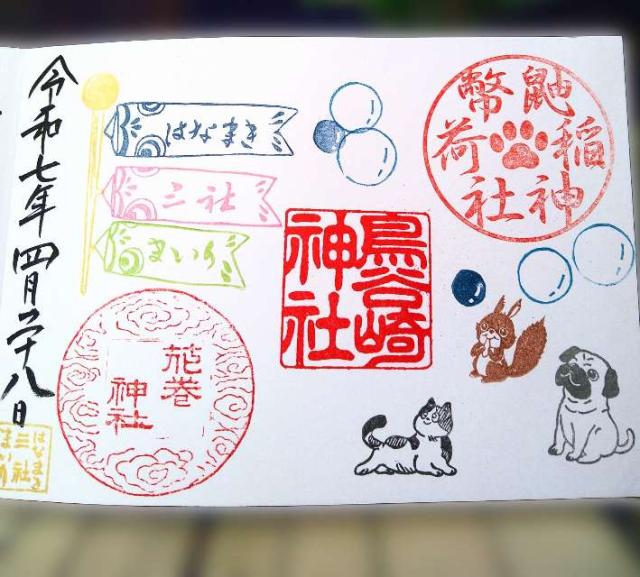 令和七年四月二十八日
はなまき
三社
まいり
鼬幣
稲荷
神社
鳥谷崎
神社
花巻
神社
はなまき
三社
まいり